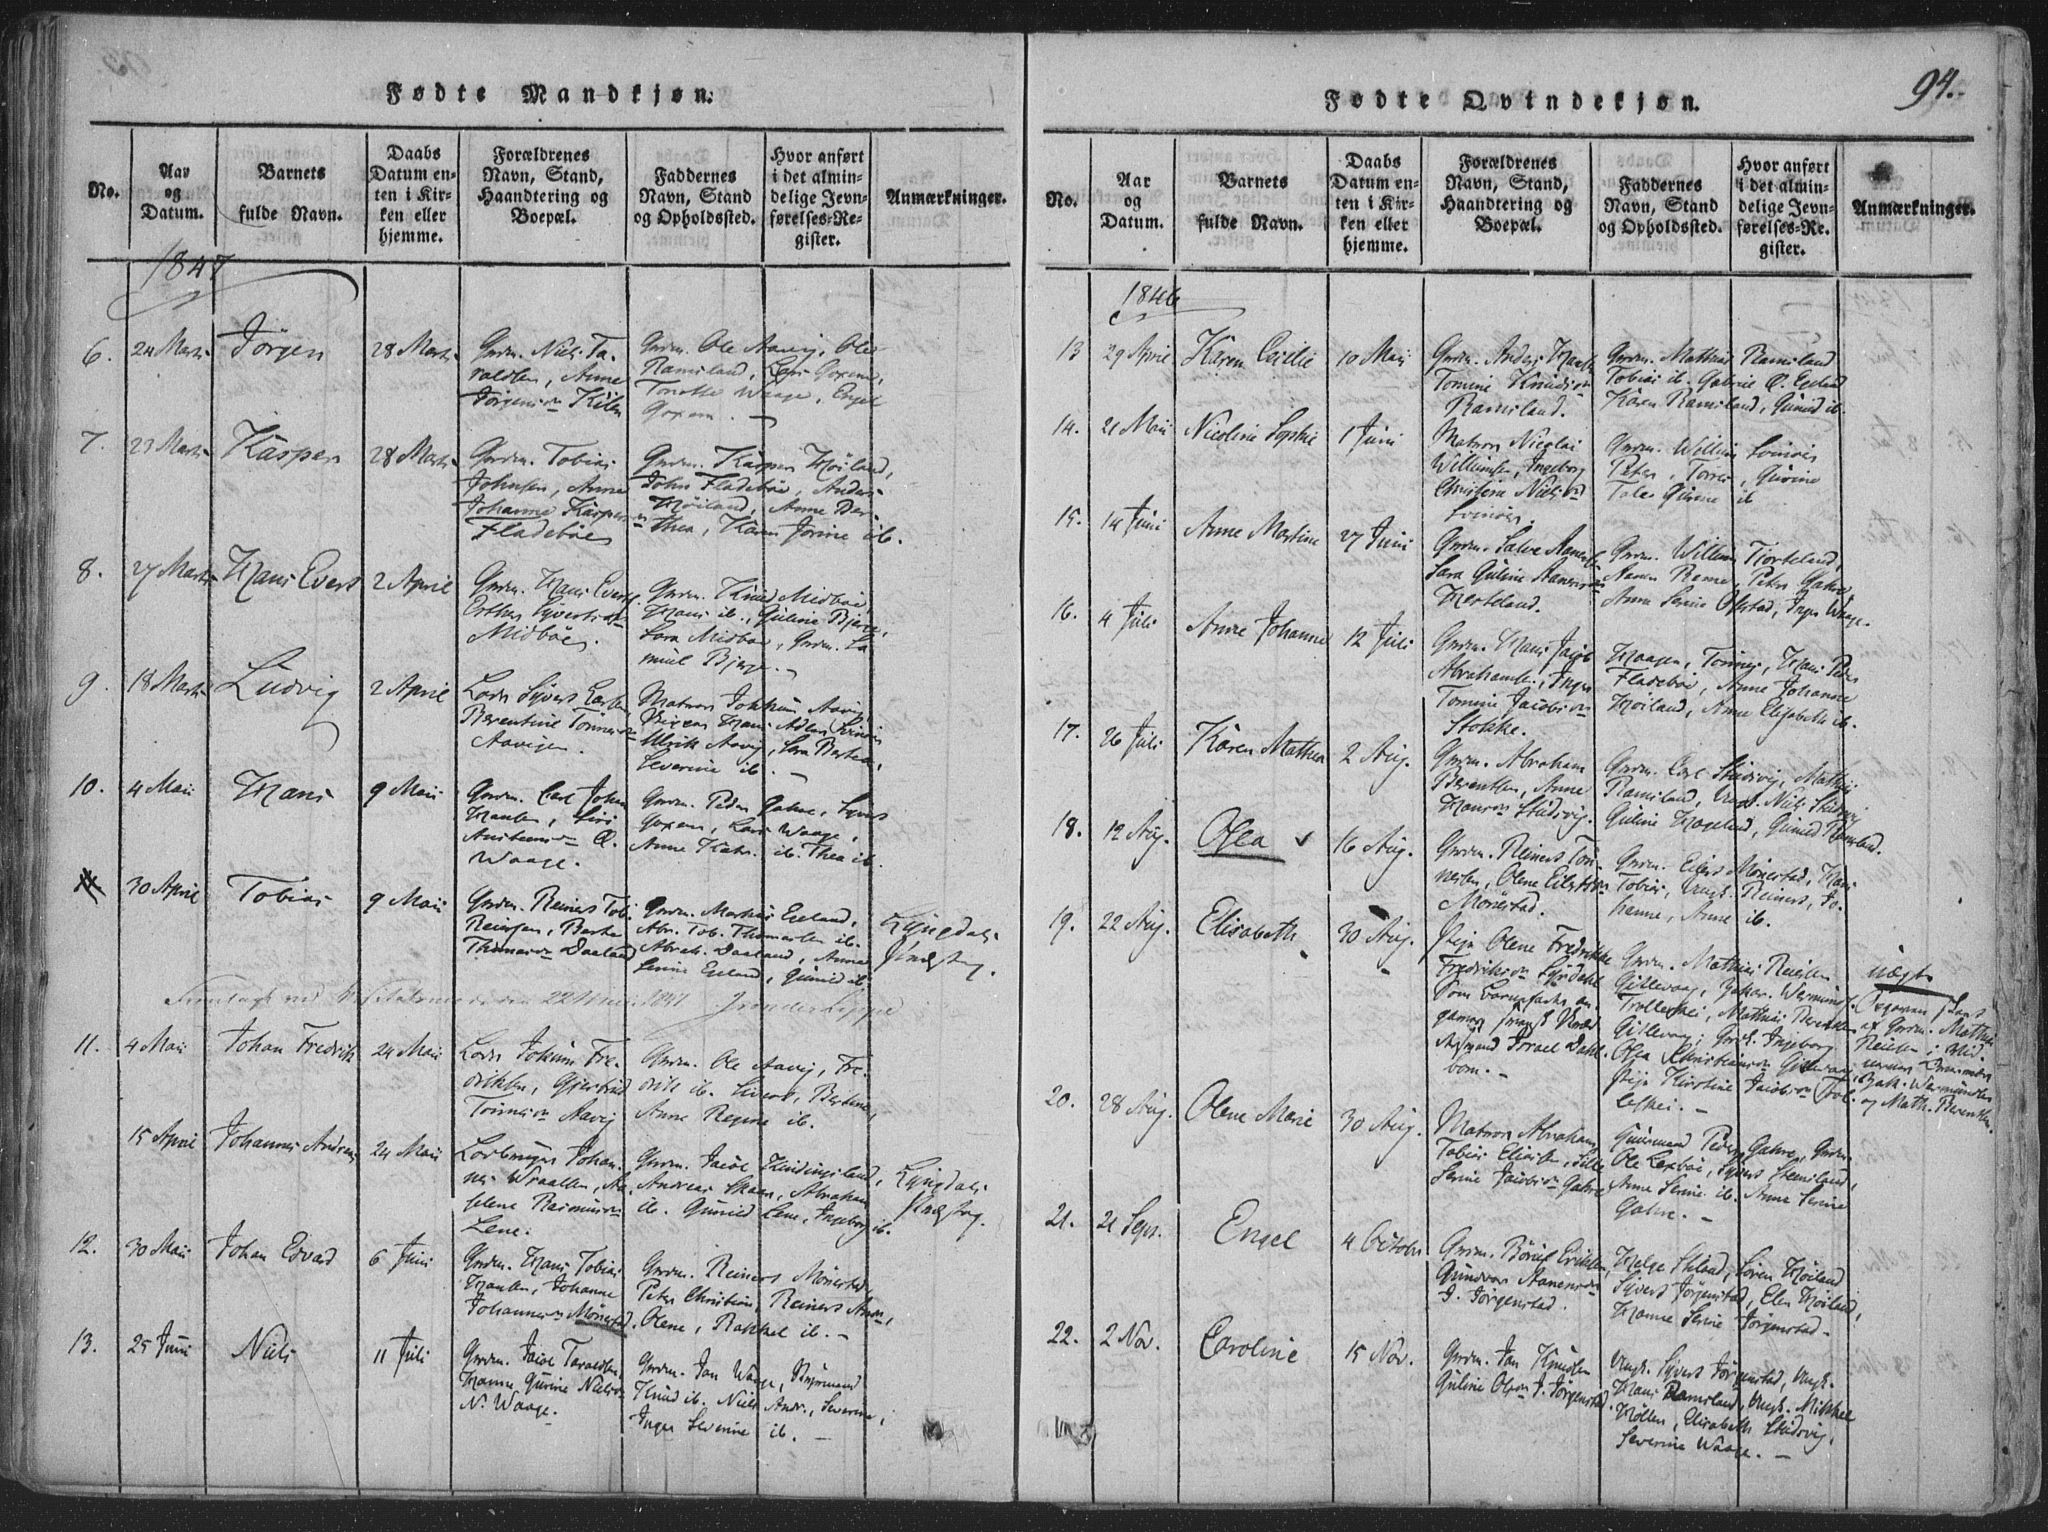 Fødte Mandkjøn.
No.
Aar og Datum.
Barnets fulde Navn.
Daabs Datum enten i Kirken eller hjemme.
Forældrenes Navn, Stand, Haandtering og Boepæl.
Faddernes Navn, Stand og Opholdssted.
Hvor anført i det almindelige Jevnførelses-Register.
Anmærkninger.
1847
6. 24 Marts Jørgen 28 Marts
Grdm. Niels Ta-
raldsen, Anne
Jørgensdr
Grdm. Ole Aavig, Ole
Ramsland, Lars Goxem,
Torotte Waage, Engel
Goxem. -
7. 23 Marts Kasper 28 Marts
Grdm. Tobias
Johnsen, Anne
Johanne Kaspers-
Fladebøe
Grdm. Kasper Høiland,
John Fladebøe, Anders
Høiland, Anne Ber-
thea, Karen Jorine ib.
8. 27 Marts Hans Evert 2 April
Grdm. Hans Evers.
Sÿvertsdr
Midbøe.
Grdm. Knud Midbøe,
Hans ib., Guline Bjerge,
Sara Midbøe, Grdm. Sa-
muel Bjerge. -
9 18 Marts Ludvig 2 April
Lods Syvert
Berentine Tønnesdr
Aavigen.
Matros Jokkum Aavig,
Hans Adlar Svinør
Ulrik Aavig, Sara Bertea,
Severine ib. -
10. 4 Mai Hans 9 Mai
Grdm. Carl Johan
Hansen, Siri
Ø.
Waage.
Grdm. Peder Gahre, Syvert
Goxem, Lars Waage,
Anne Kath. ib. Thea ib.
30 April Tobias 9 Mai
Grdm. Reinert Tob.
Reiersen, Berte
Thomasdr Daaland
Grdm. Markus Egeland,
Abr. Tob. Thomassen ib.
Abrah. Daaland, Anne
Serine Egeland, Gunild ib.
Lyngdals
Præstg.
22 Mai 1847
11. 4 Mai Johan Fredrik 24 Mai
Lods Jokum Fre-
driksen, Gjertrud
Tønnesdr Aavig
Grdm. Ole Aavig, Fre-
drik ib. Sivert, Bertine,
Anne Regine ib.
15 April Johannes Andreas 24 Mai
Johan-
nes Wraalsen, As-
selene Rasmusdr
Lene.
Grdm. Jacob Kindingsland,
Andreas Skaar, Abraham
ib. Gunild Lene, Ingeborg ib.
Lyngdals
Præstg.
12. 30 Mai Johan Edvard 6 Juni
Grdm. Hans Tobias
Hansen, Johanne
Johannesdr Mønestad.
Grdm. Reinert Mønestad,
Peter Christian, Reinert Andr.,
Olene, Rakkel ib. -
13. 25 Juni Niels 11 Juli
Grdm. Jacob Taraldsen,
Hanne Gurine Nielsdr
N. Waage.
Grdm. Jan Waage,
Knud ib. Niels Andr., Severine,
Inger Severine ib. -
Fødte Qvindekjøn.
94.
No.
Aar og Datum.
Barnets fulde Navn.
Daabs Datum enten i Kirken eller hjemme.
Forældrenes Navn, Stand, Haandtering og Boepæl.
Faddernes Navn, Stand og Opholdssted.
Hvor anført i det almindelige Jevnførelses-Re.gister.
Anmærkninger.
1846
13 29 April Karen Cecilie 10 Mai
Grdm. Anders Hansen
Tomine Knudsdr
Ramsland.
Grdm. Mathias Ramsland
Tobias ib. Gabriel Ø. Egeland
Karen Ramsland, Gunild ib.
14. 21 Mai Nicoline Sophie 1 Juni
Matros Nicolai
Willumsen, Ingeborg
Christine Nielsdr
Svinør.
Grdm. Willum Svinør
Peter, Tørres, Gurine
Tale Gurine ib
15. 14 Juni Anne Martine 27 Juni
Grdm. Salve Aanens.
Sara Guline Aanensdr
Herteland.
Grdm. Willum Tjorteland,
Aanen Renne, Peter Gahre,
Anne Serine Ofstad, Inger Waage.
16. 4 Juli Anne Johanne 12 Juli
Grdm. Hans Jacob
Abrahamsen, Inger
Tomine Jacobsdr
Stokke.
Haagen, Tønnes, Hans Peder
Fladebøe, Anne Johanne
Høiland, Anne Elisabeth ib.
17. 26 Juli Karen Mathea 2 Aug.
Grdm. Abraham
Berentsen, Anne
Hansdr Studvig.
Grdm. Carl Studvig, Mathias
Ramsland, Ungk. Niels Studvig
Guline Hageland, Gunild Ramsland.
18. 12 Aug. Olea 16 Aug.
Grdm. Reinert Tøn-
nesen, Olene Eilertsdr
Mønestad.
Grdm. Eilert Mønestad, Hans
Tobias, Ungk. Reinert, Jo-
hanne, Anne ib.
19. 22 Aug. Elisabeth 30 Aug.
Pige Olene Fredrikke
Fredriksdr
Som Barnefader an-
gaves
Israel Dahl-
bom. -
Grdm. Mathias Reiersen
Gitlevaag, Zakar. Wermundsen
Trolleskei, Mathias Berentsen
Gitlevaag, Grdk. Ingeborg
Olea Christiansdr Gitlevaag,
Pige Kirstine Jacobsdr Trol-
leskei. -
Uægte
Opgaven
af Grdm. Mathias
Reiersen
Zak. Wermundsen
og Math. Berentsen.
20. 28 Aug. Olene Marie 30 Aug.
Matros Abraham
Tobias Eliasen, Sille
Serine Jacobsdr Gahre
Peder Gahre, Grdm.
Ole Lexbøe, Syvert Stensland,
Anne Serine ib. Anne Serine
Gahre. -
21. 21 Sept. Engel 4 Octobr
Grdm. Børul Eriksen,
Gundvor Aanensdr
I. Jørgenstad.
Helge Skland, Søren Høiland
Syvert Jørgenstad, Elen Høiland,
Hanne Serine Jørgenstad -
22. 2 Nov. Caroline 15 Nov.
Grdm. Jan Knudsen
Guline Olsdr I. Jørgenstad.
Ungk. Syvert Jørgenstad, Ungk.
Hans Ramsland, Ungk. Mikkel
Høllen, Elisabeth Studvig,
Severine Waage. -